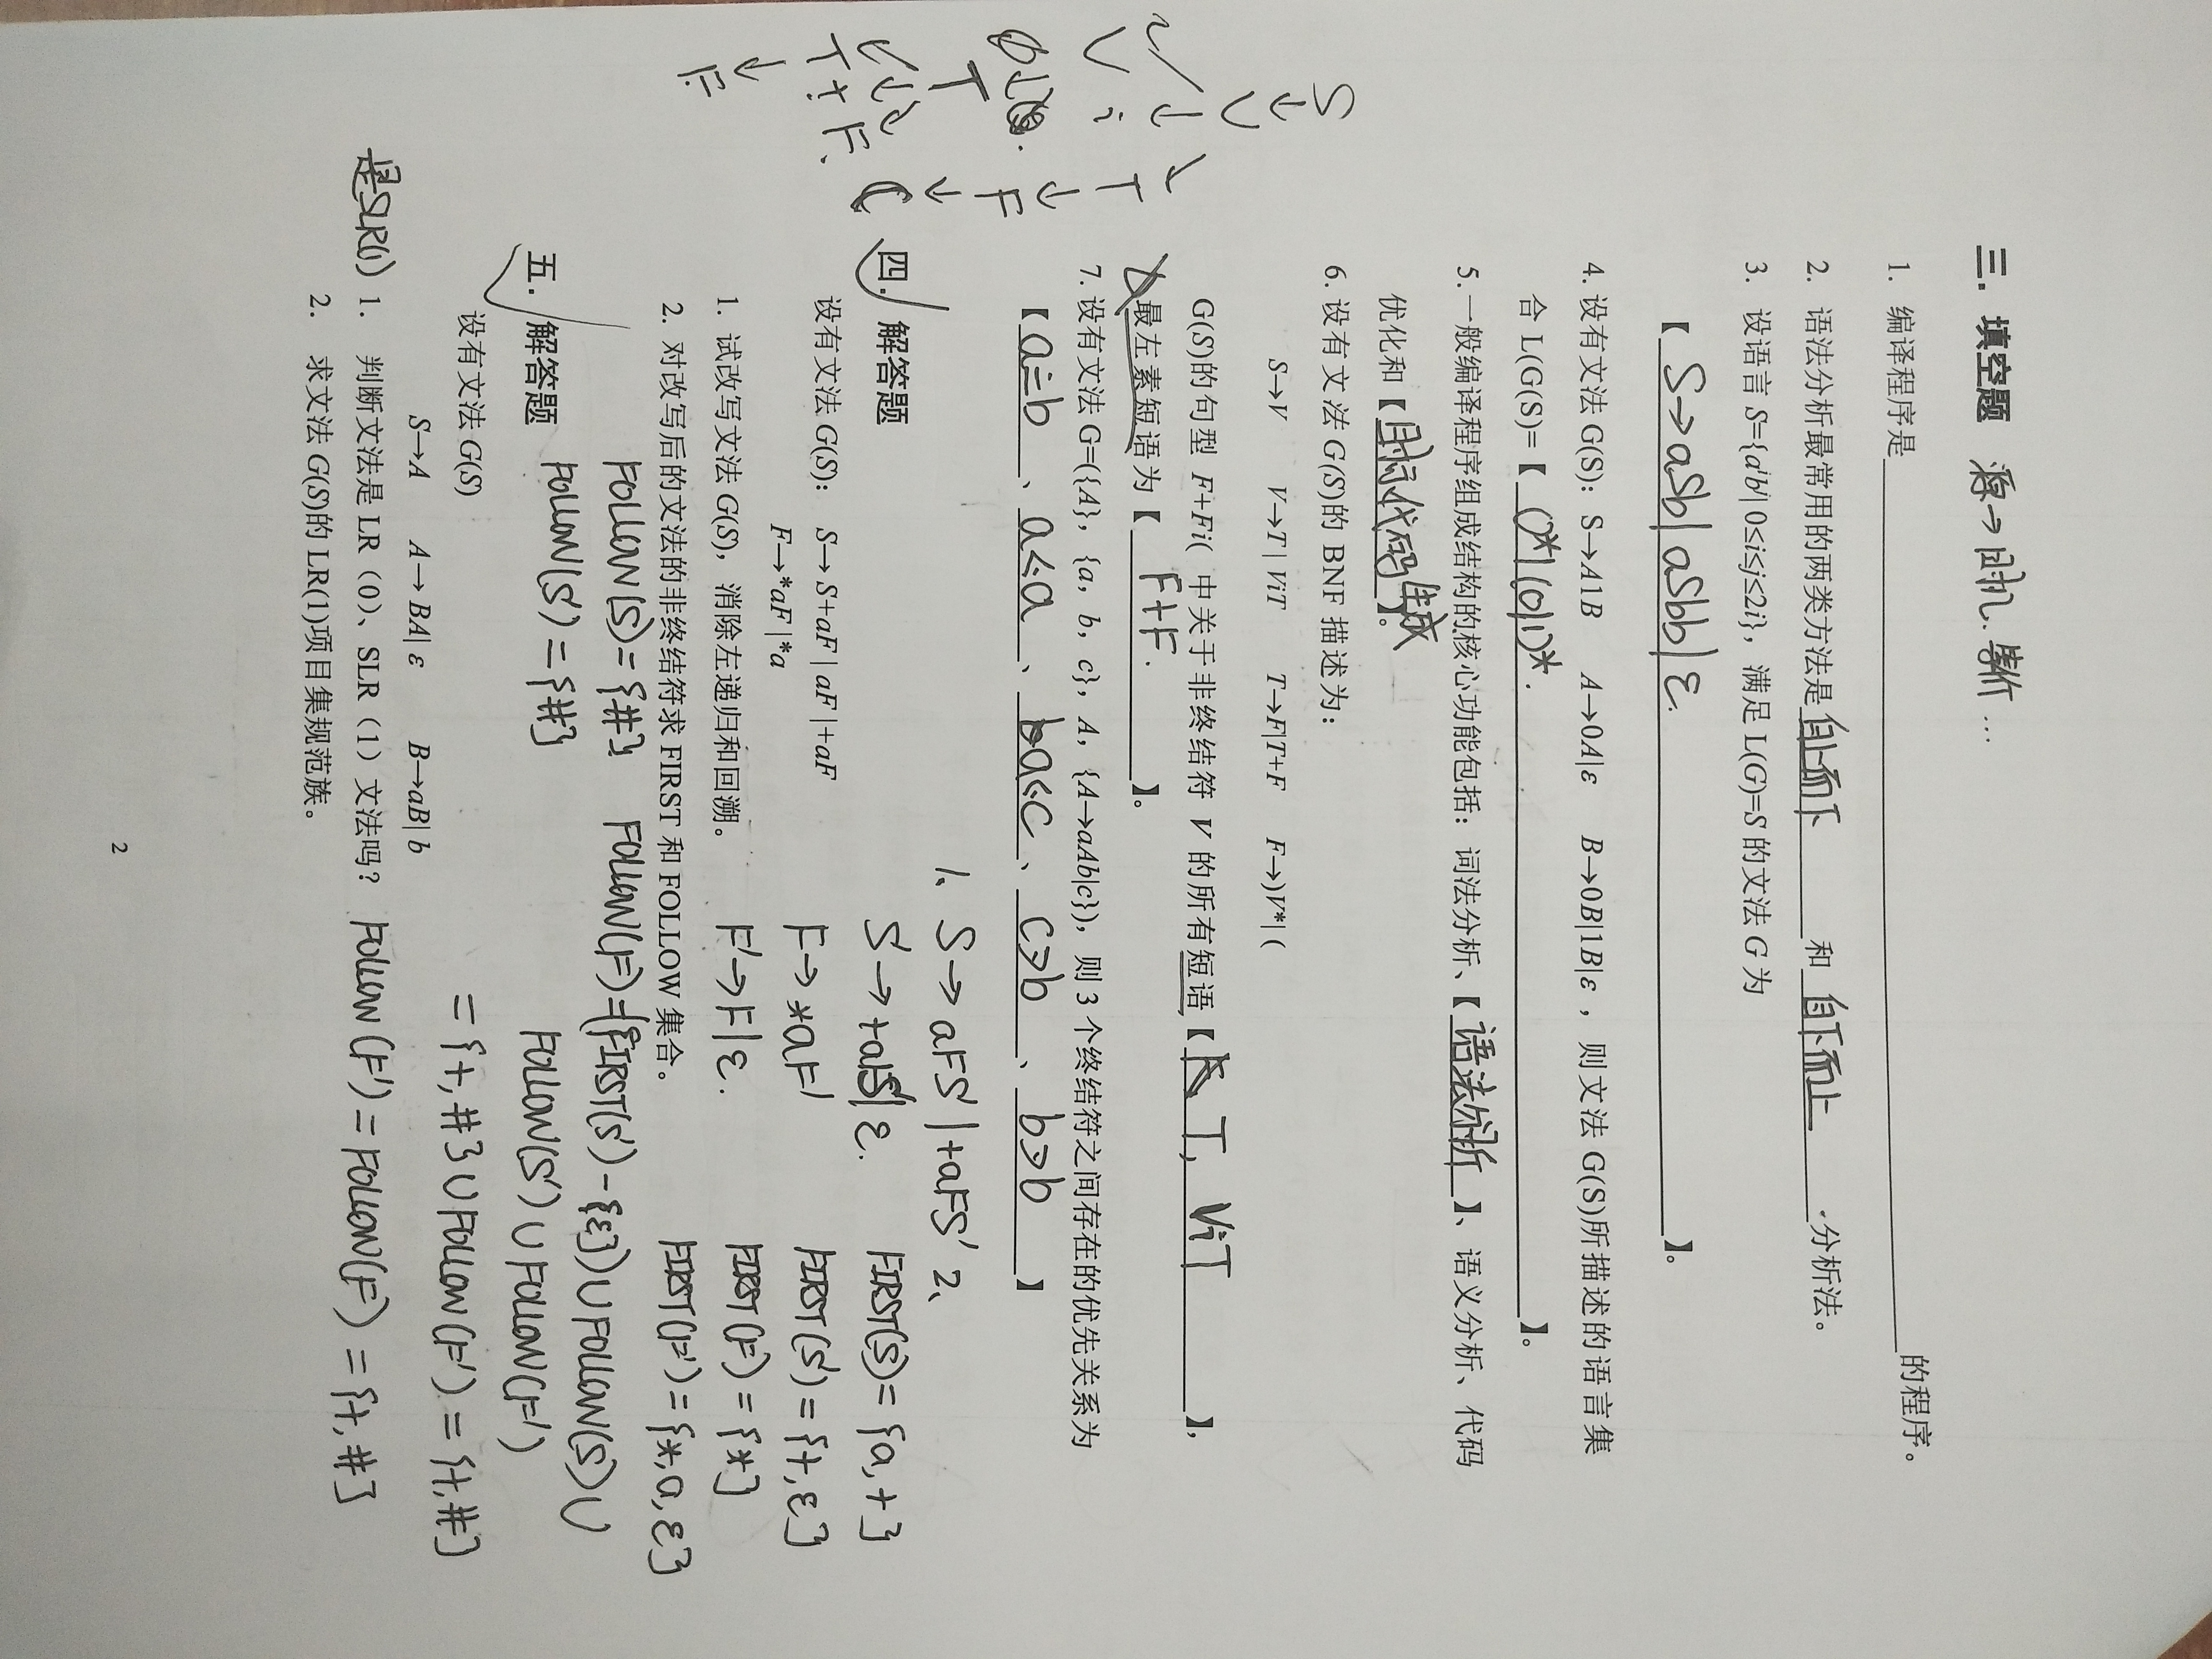 三. 填空题
1. 编译程序是____的程序。
2. 语法分析最常用的两类方法是 自上而下 和 自下而上 分析法。
3. 设语言 S={aⁱbʲ| 0≤i≤j≤2i}，满足 L(G)=S 的文法 G 为
【 S→aSb|aSbb|ε. 】。
4. 设有文法 G(S)：S→A1B A→0A|ε B→0B|1B|ε ，则文法 G(S)所描述的语言集
合 L(G(S)=【 0*1(0|1)*. 】。
5. 一般编译程序组成结构的核心功能包括：词法分析、【语法分析】、语义分析、代码
优化和【目标代码生成】。
6. 设有文法 G(S)的 BNF 描述为：
S→V V→T | ViT T→F|T+F F→)V*| (
G(S)的句型 F+Fi( 中关于非终结符 V 的所有短语【 T, ViT 】，
最左素短语为【 F+F. 】。
7. 设有文法 G=({A}，{a，b，c}，A，{A→aAb|c})，则 3 个终结符之间存在的优先关系为
【 a≐b 、 a⋖a 、 a⋖c 、 c⋗b 、 b⋗b 】
四. 解答题
设有文法 G(S)： S→ S+aF | aF | +aF
F→*aF | *a
1. 试改写文法 G(S)，消除左递归和回溯。
2. 对改写后的文法的非终结符求 FIRST 和 FOLLOW 集合。
1、S→aFS'|+aFS'
S'→+aFS'|ε.
F→*aF'
F'→F|ε.
2、
FIRST(S)={a,+}
FIRST(S')={+,ε}
FIRST(F)={*}
FIRST(F')={*,a,ε}
FOLLOW(S)={#}
FOLLOW(S')={#}
FOLLOW(F)=(FIRST(S')-{ε})∪FOLLOW(S)∪
FOLLOW(S')∪FOLLOW(F')
={+,#}∪FOLLOW(F')={+,#}
FOLLOW(F')=FOLLOW(F)={+,#}
五. 解答题
设有文法 G(S)
S→A A→ BA| ε B→aB| b
是SLR(1)
1. 判断文法是 LR（0）、SLR（1）文法吗？
2. 求文法 G(S)的 LR(1)项目集规范族。
2